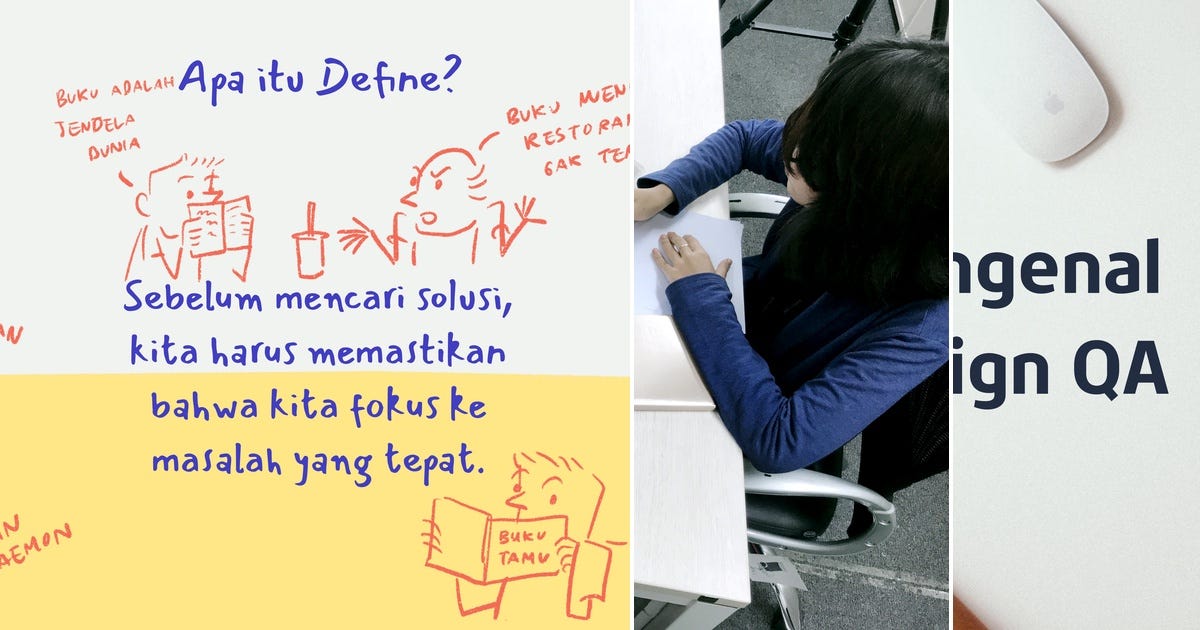 Apa itu Define?
BUKU ADALAH
JENDELA
DUNIA
BUKU MEN
RESTORA
GAK TE
Sebelum mencari solusi,
kita harus memastikan
bahwa kita fokus ke
masalah yang tepat.
AN
AN
AEMON
BUKU
TAMU
ngenal
ign QA